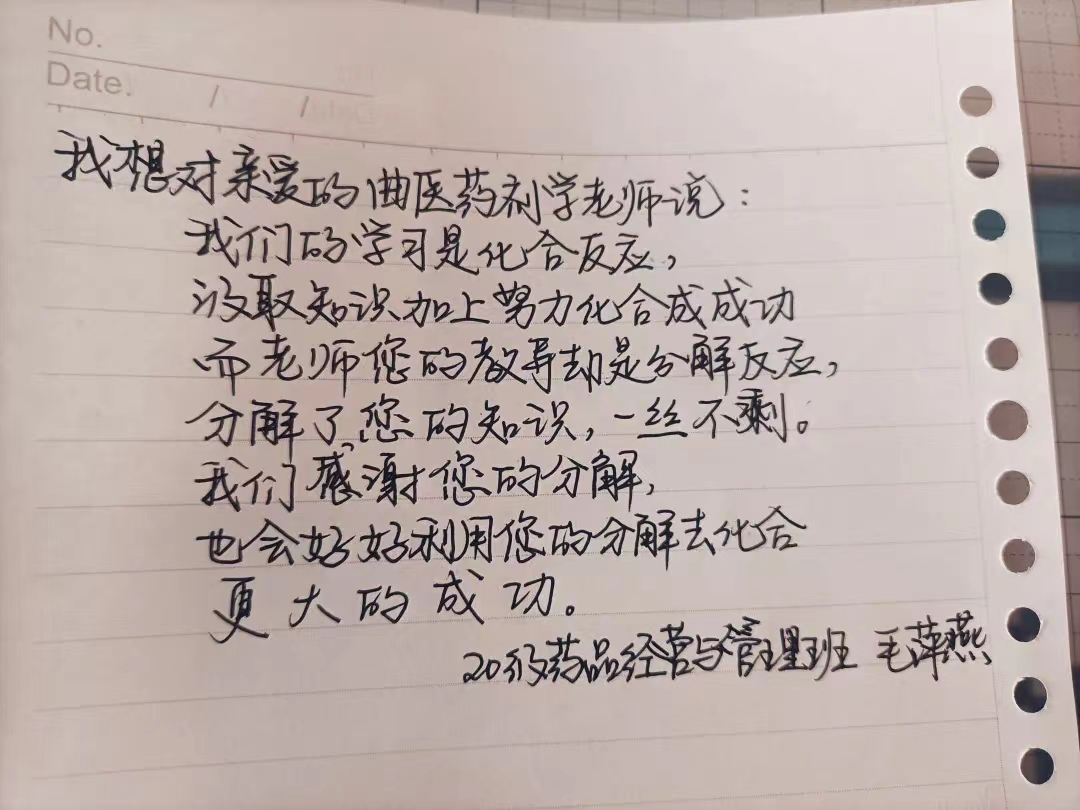 No.
Date. / /
我想对亲爱的曲医药剂学老师说：
我们的学习是化合反应，
汲取知识加上努力化合成成功
而老师您的教导却是分解反应，
分解了您的知识，一丝不剩。
我们感谢您的分解，
也会好好利用您的分解去化合
更大的成功。
20级药品经营与管理班 毛萍燕